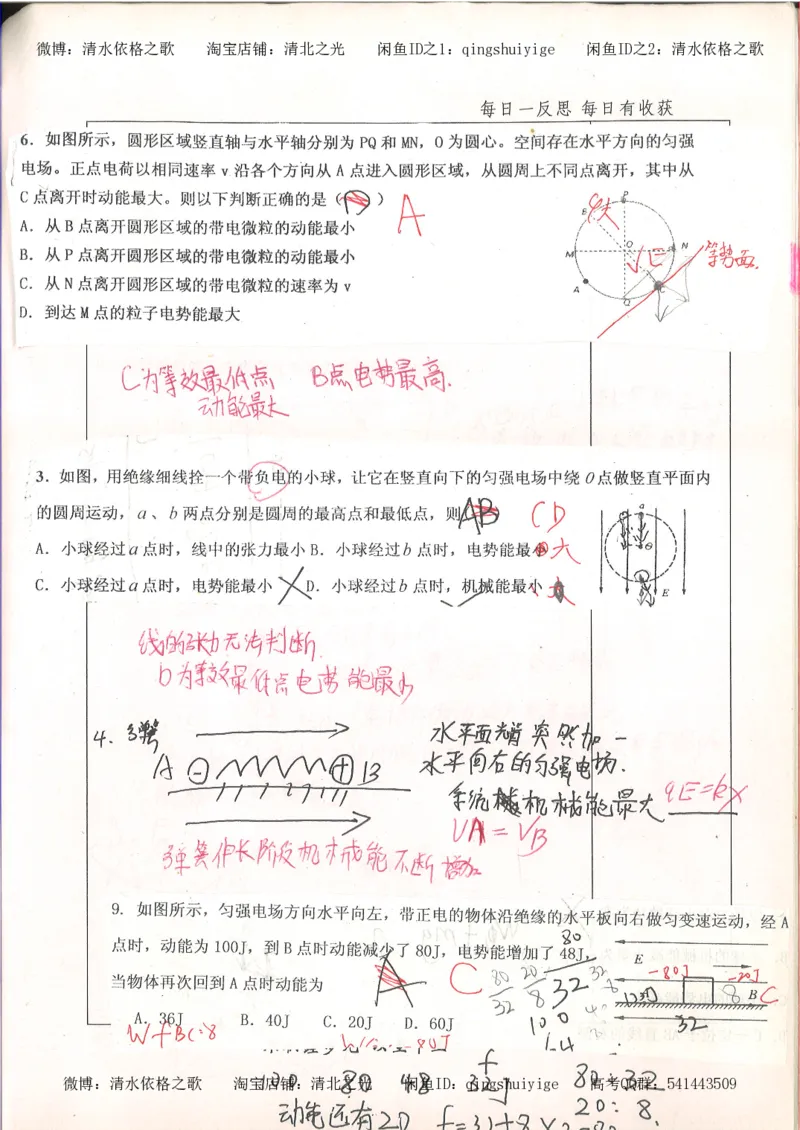 微博：清水依格之歌 淘宝店铺：清北之光 闲鱼ID之1：qingshuiyige 闲鱼ID之2：清水依格之歌
每日一反思 每日有收获
6. 如图所示，圆形区域竖直轴与水平轴分别为 PQ 和 MN，O 为圆心。空间存在水平方向的匀强
电场。正点电荷以相同速率 v 沿各个方向从 A 点进入圆形区域，从圆周上不同点离开，其中从
C 点离开时动能最大。则以下判断正确的是（ ）
A
A. 从 B 点离开圆形区域的带电微粒的动能最小
B. 从 P 点离开圆形区域的带电微粒的动能最小
C. 从 N 点离开圆形区域的带电微粒的速率为 v
D. 到达 M 点的粒子电势能最大
P
B
O
N
M
A
Q
C
E
等势面.
C为等效最低点 B点电势最高.
动能最大
3. 如图，用绝缘细线拴一个带负电的小球，让它在竖直向下的匀强电场中绕 O 点做竖直平面内
的圆周运动，a、b 两点分别是圆周的最高点和最低点，则 AB CD
A. 小球经过 a 点时，线中的张力最小 B. 小球经过 b 点时，电势能最 大
C. 小球经过 a 点时，电势能最小 D. 小球经过 b 点时，机械能最小 大
a
O
E
线的张力无法判断.
b为等效最低点电势能最小
4. 弹簧
水平面光滑 突然加一
A B
水平向右的匀强电场.
系统 机械能最大 qE=kx
VA=VB
弹簧伸长阶段机械能不断增加
9. 如图所示，匀强电场方向水平向左，带正电的物体沿绝缘的水平板向右做匀变速运动，经 A
点时，动能为 100J，到 B 点时动能减少了 80J，电势能增加了 48J，
当物体再次回到 A 点时动能为 A C
A. 36J B. 40J C. 20J D. 60J
80
80 20 32
32 8
100
E
-80J -20J
A 8 B C
32
100 80 48 32J 80：32
微博：清水依格之歌 淘宝店铺：清北之光 闲鱼ID：qingshuiyige 高考QQ群：541443509
动能还有20
20：8.